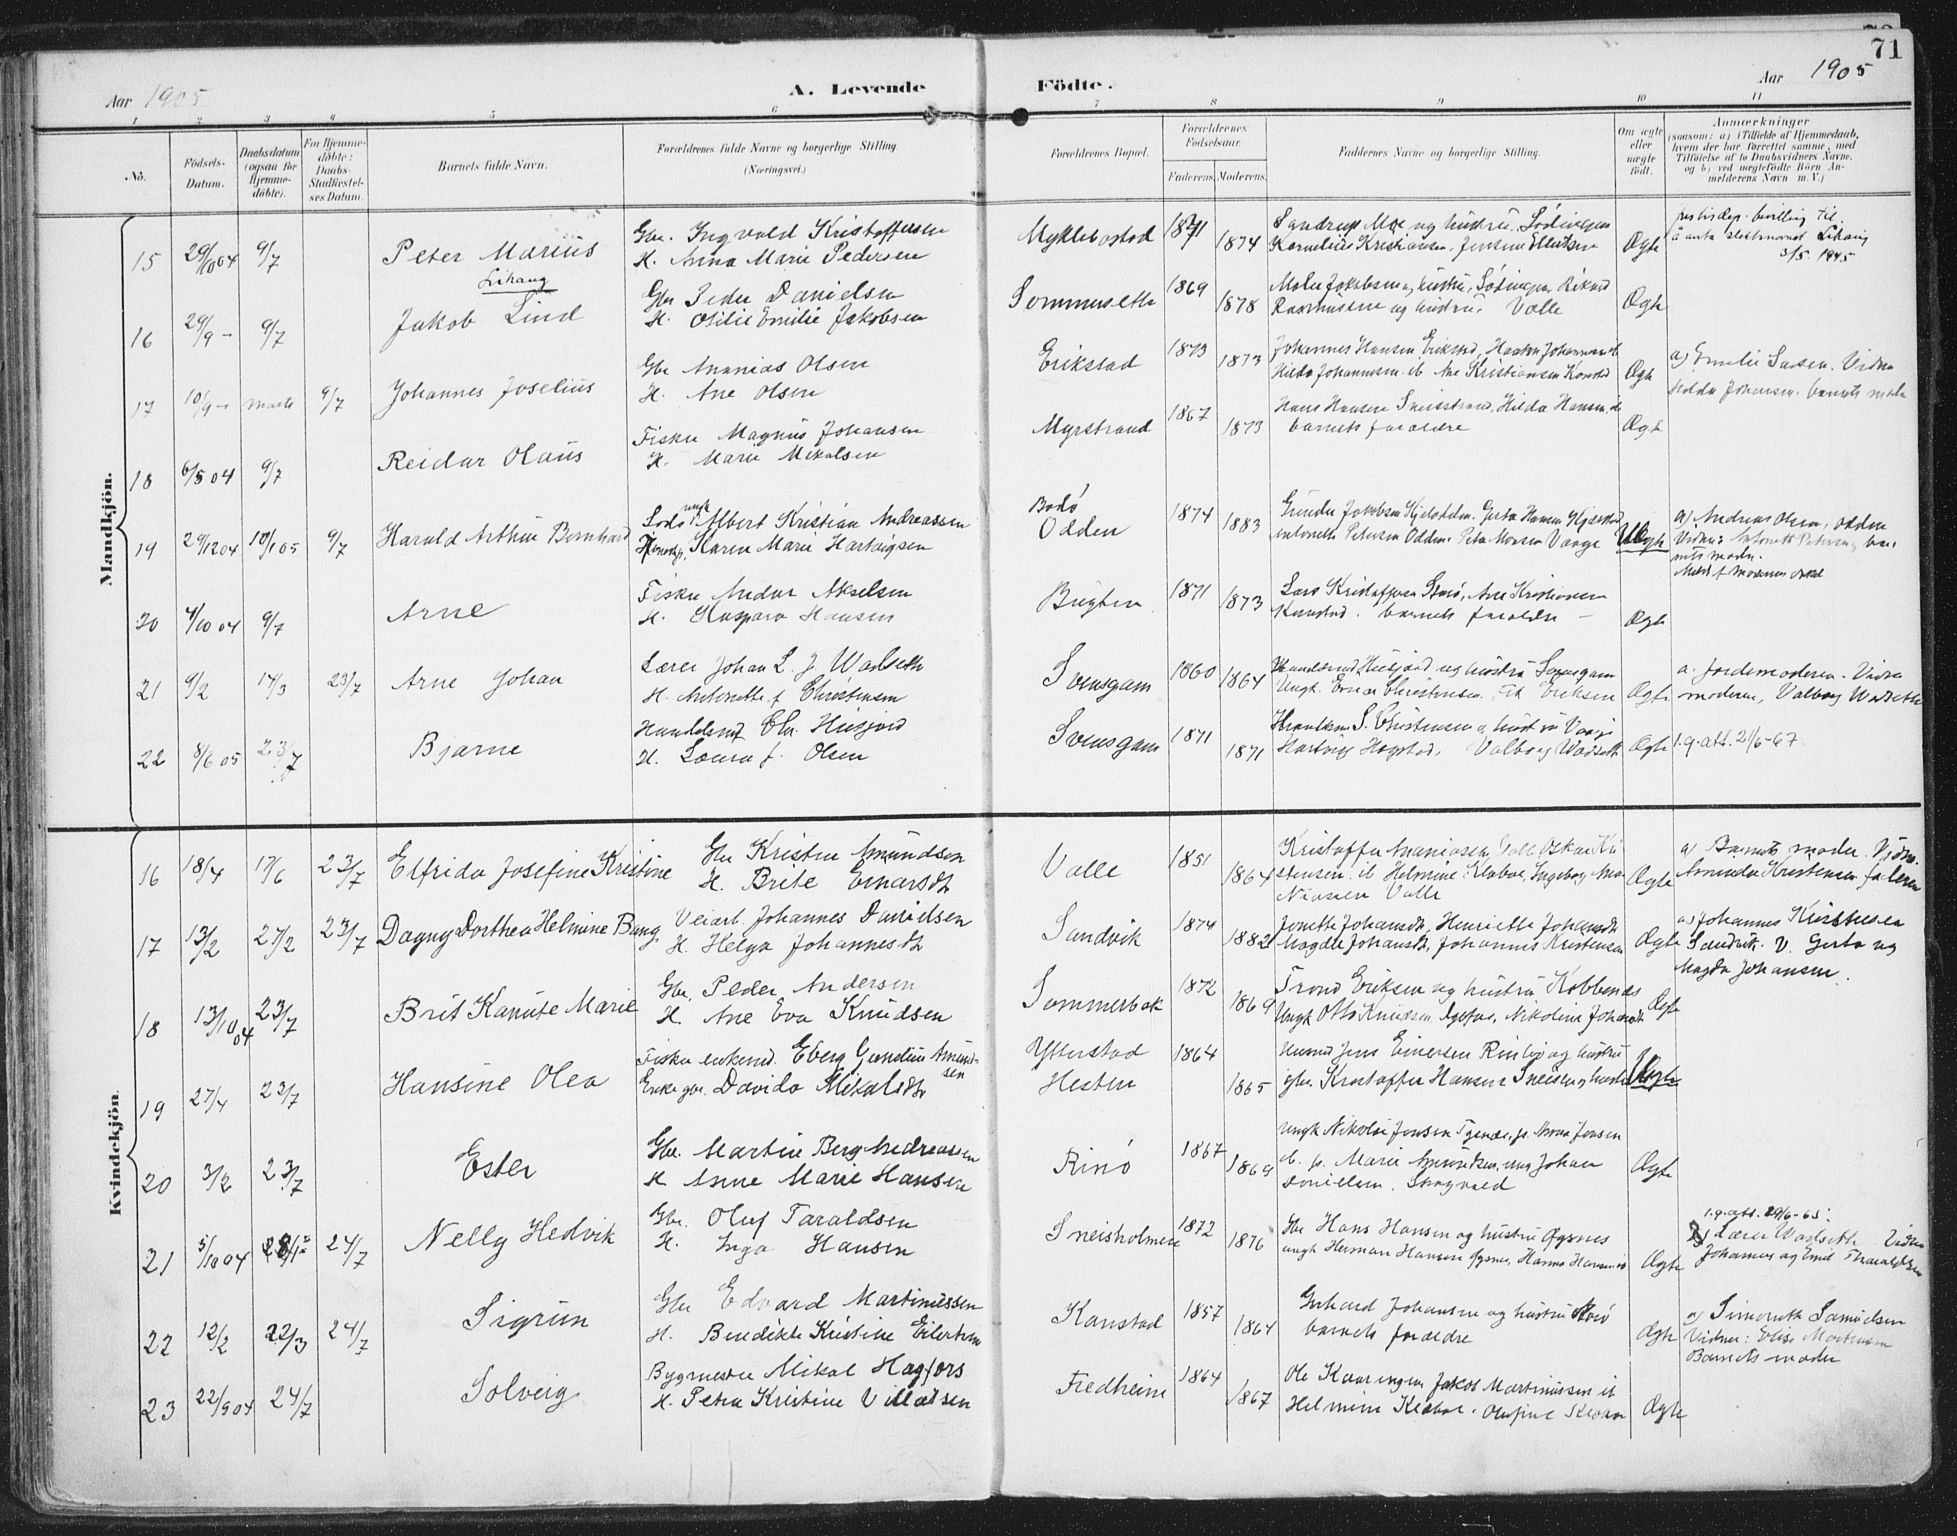 71
Aar 1905
A. Levende
Födte.
Aar 1905
1 2 3 4 5 6 7 8 9 10 11
No.
Födsels-Datum.
Daabsdatum (ogsaa for Hjemme-döbte).
For Hjemme-döbte: Daabs-Stadfæstelses Datum.
Barnets fulde Navn.
Forældrenes fulde Navne og borgerlige Stilling.
(Næringsvei.)
Forældrenes Bopæl.
Forældrenes Födselsaar.
Faderens. Moderens.
Faddernes Navne og borgerlige Stilling.
Om ægte eller uægte födt.
Anmærkninger
(saasom: a) i Tilfælde af Hjemmedaab,
hvem der har forrettet samme, med
Tilföielse af to Daabsvidners Navne,
og b) ved uægtefödte Börn An-
melderens Navn m. V.)
Mandkjön.
15 29/10 04 9/7 Peter Marius
Lihaug
Gbr. Ingvald Kristoffersen
H. Anna Marie Pedersen
Myklebostad 1871 1874
Kornelius Kristiansen, Jensine Ellertsen
Ægte
justisdep. bevilling til
å anta slektsnavnet Lihaug
3/5 1945
16 29/9 – 9/7 Jakob Lind
Gbr Peder Danielsen
H. Otilie Emilie Jakobsen
1869 1878
Rasmussen og hustru. Valle
Ægte
17 10/9 – 9/7 Johannes Joselius
Gbr Ananias Olsen
H. Ane Olsen
Erikstad 1873 1873
Johannes Hansen Erikstad,
Hilda Johannesen ib Ane Kristiansen Kanstad
Ægte
a) Emelie Larsen. Vidne
Hedda Johansen. barnets moder
18 6/5 04 9/7 Reidar Olaus
Fisker Magnus Johansen
H. Marie Mikalsen
Myrstrand 1867 1873
Hans Hansen Sneisstrand, Hilda Hansen, ib
barnets forældre
Ægte
19 29/12 04 10/1 05 9/7 Harald Arthur Bernhard
ungk Albert Kristian Andreassen
Karen Marie Hartvigsen
Bodø
Odden 1874 1883
Antonette Petersen Odden.
Uægte
a) Andreas Olsen, Odden
Vidner: Antonette Petersen, bar-
nets moder.
20 4/10 04 9/7 Arne
Fisker Andor Akselsen
H. Kaspara Hansen
Bugten 1871 1873
Lars Kristoffersen Storø, Ane Kristiansen
Kanstad. barnets forældre –
Ægte
21 9/2 14/3 23/7 Arne Johan
Lærer Johan L. J. Wadseth
H. Antonette f Christensen
Svensgam 1860 1864
Handelsmd Husjord og hustru Svensgam
Ungk. Einar Christensen
Ægte
a. Jordemoderen. Vidne
moderen, Valborg Wadseth
22 8/6 05 23/7 Bjarne
Handelsmd Chr. Husjord
H. Laura f. Olsen
Svensgam 1871 1871
Handlsm S. Christensen og hustru Vaage
Hartvig Hogstad, Valborg Wadseth
Ægte
l.q.att. 21/6-67.
Kvindekjön.
16 18/4 17/6 23/7 Elfrida Josefine Kristine
Gbr Kristen Amundsen
H. Brite Einarsdt
Valle 1851 1864
Kristoffer Ananiassen Valle Oskar Kri
stensen ib Helmine Klaboe, Ingeborg Ana
niassen Valle
Ægte
a) Barnets moder. Vidne.
Amunda Kristensen, faderen
17 13/2 27/2 23/7 Dagny Dorthea Helmine Bang
Veiarb. Johannes Danielsen
H. Helga Johannesdt
Sandvik 1874 1882
Jonette Johansdt, Henriette Johansdt
Magda Johansdt, Johannes Kristensen
Ægte
a) Johannes Kristensen
Sandvik. V. Gerta og
Magda Johansen.
18 13/10 04 23/7 Brit Kanute Marie
Gbr. Peder Andersen
H. Ane Eva Knudsen
Sommerbak 1872 1869
Trond Eriksen og hustru Kobbenes
Ungk Otto Knudsen, Nikoline Johansdt
Ægte
19 27/4 23/7 Hansine Olea
Fisker enkemd. Eberg Gunelius Amund-
sen
Enke gbr. Davida Mikalsdt
Ytterstad
Hesten 1864 1865
Husmd Jens Einersen Rinbø og hustru
gbr. Kristoffer Hansen Sneisen og hustru
Uægte
20 3/2 23/7 Ester
Gbr. Martin Berg Andreassen
H Anne Marie Hansen
Rinø 1867 1869
Ungk Nikolai Jensen
ib. p. Marie Amundsen, um Johan
Danielsen. Skogvold
Ægte
21 5/10 04 24/7 Nelly Hedvik
Gbr. Oluf Taraldsen
H. Inga Hansen
Sneisholmen 1872 1876
Gbr Hans Hansen og hustru Øgsnes
ungk Herman Hansen Øgsnes, Hanna Hansen ib
Ægte
l.q.att. 29/6-65:
a) Lærer Wadseth Vidne
Johannes og Emil Tharaldsen
22 12/2 22/3 24/7 Sigrun
Gbr Edvard Martinussen
H. Benedikte Kristine Eilertsen
Kanstad 1857 1864
Gerhard Johansen og hustru Storø
barnets forældre
Ægte
a) Simonette Samuelsen
Vidner: Elise Martinsen
Barnets moder
23 22/9 04 24/7 Solveig
Bygmester Mikal Hagfors
H. Petra Kristine Villadsen
Fredheim 1864 1867
Ole Kaaringen Jakob Martinussen ib
Helmine Klaboe. Olufine Klaboe
Ægte